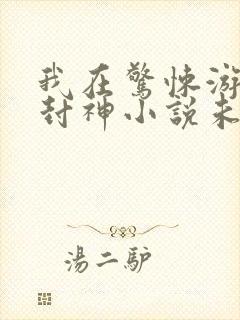 我在驚悚游
封神小說未
湯二驴